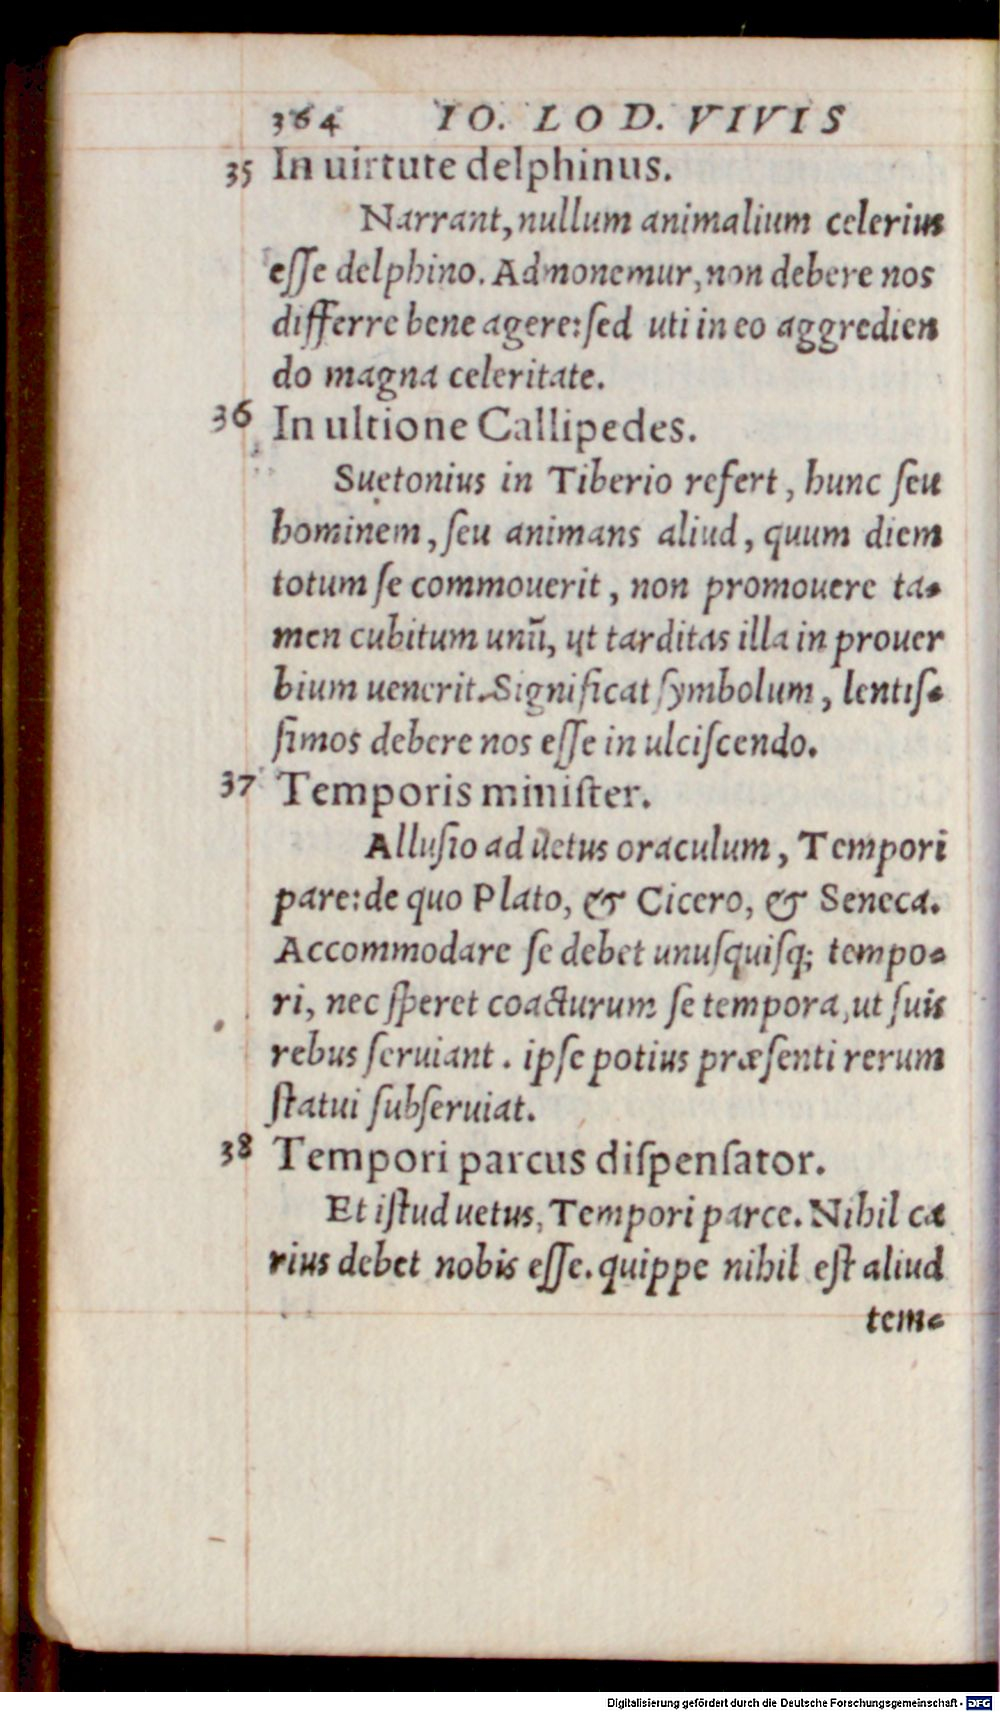 364 IO. LOD. VIVIS
35 In uirtute delphinus.
Narrant, nullum animalium celerius
eſſe delphino. Admonemur, non debere nos
differre bene agere: ſed uti in eo aggredien
do magna celeritate.
36 In ultione Callipedes.
Suetonius in Tiberio refert, hunc ſeu
hominem, ſeu animans aliud, quum diem
totum ſe commouerit, non promouere ta-
men cubitum unū, ut tarditas illa in prouer
bium uenerit. Significat ſymbolum, lentiſ-
ſimos debere nos eſſe in ulciſcendo.
37 Temporis miniſter.
Alluſio ad uetus oraculum, Tempori
pare: de quo Plato, & Cicero, & Seneca.
Accommodare ſe debet unuſquiſq; tempo-
ri, nec ſperet coacturum ſe tempora, ut ſuis
rebus ſeruiant. ipſe potius præſenti rerum
ſtatui ſubſeruiat.
38 Tempori parcus diſpenſator.
Et iſtud uetus, Tempori parce. Nihil ca
rius debet nobis eſſe. quippe nihil eſt aliud
tem-
Digitalisierung gefördert durch die Deutsche Forschungsgemeinschaft - DFG